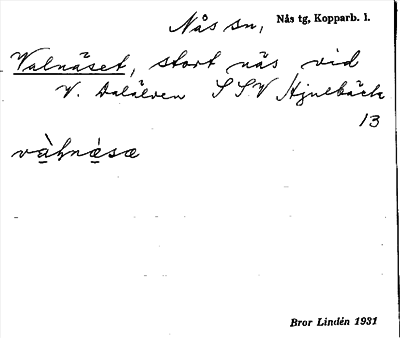 Nås sn, Nås tg, Kopparb. l.
Valnäset, stort näs vid
V. Dalälven SSV Hjulbäck
13
vàhnäsə
Bror Lindén 1931